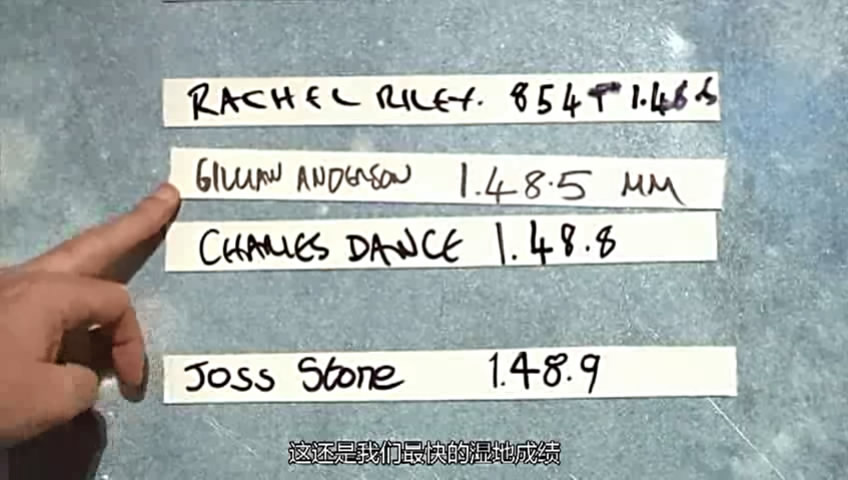 RACHEL RILEY. 854
GILLIAN ANDERSON 1.48.5 MM
CHARLES DANCE 1.48.8
Joss Stone 1.48.9
这还是我们最快的湿地成绩